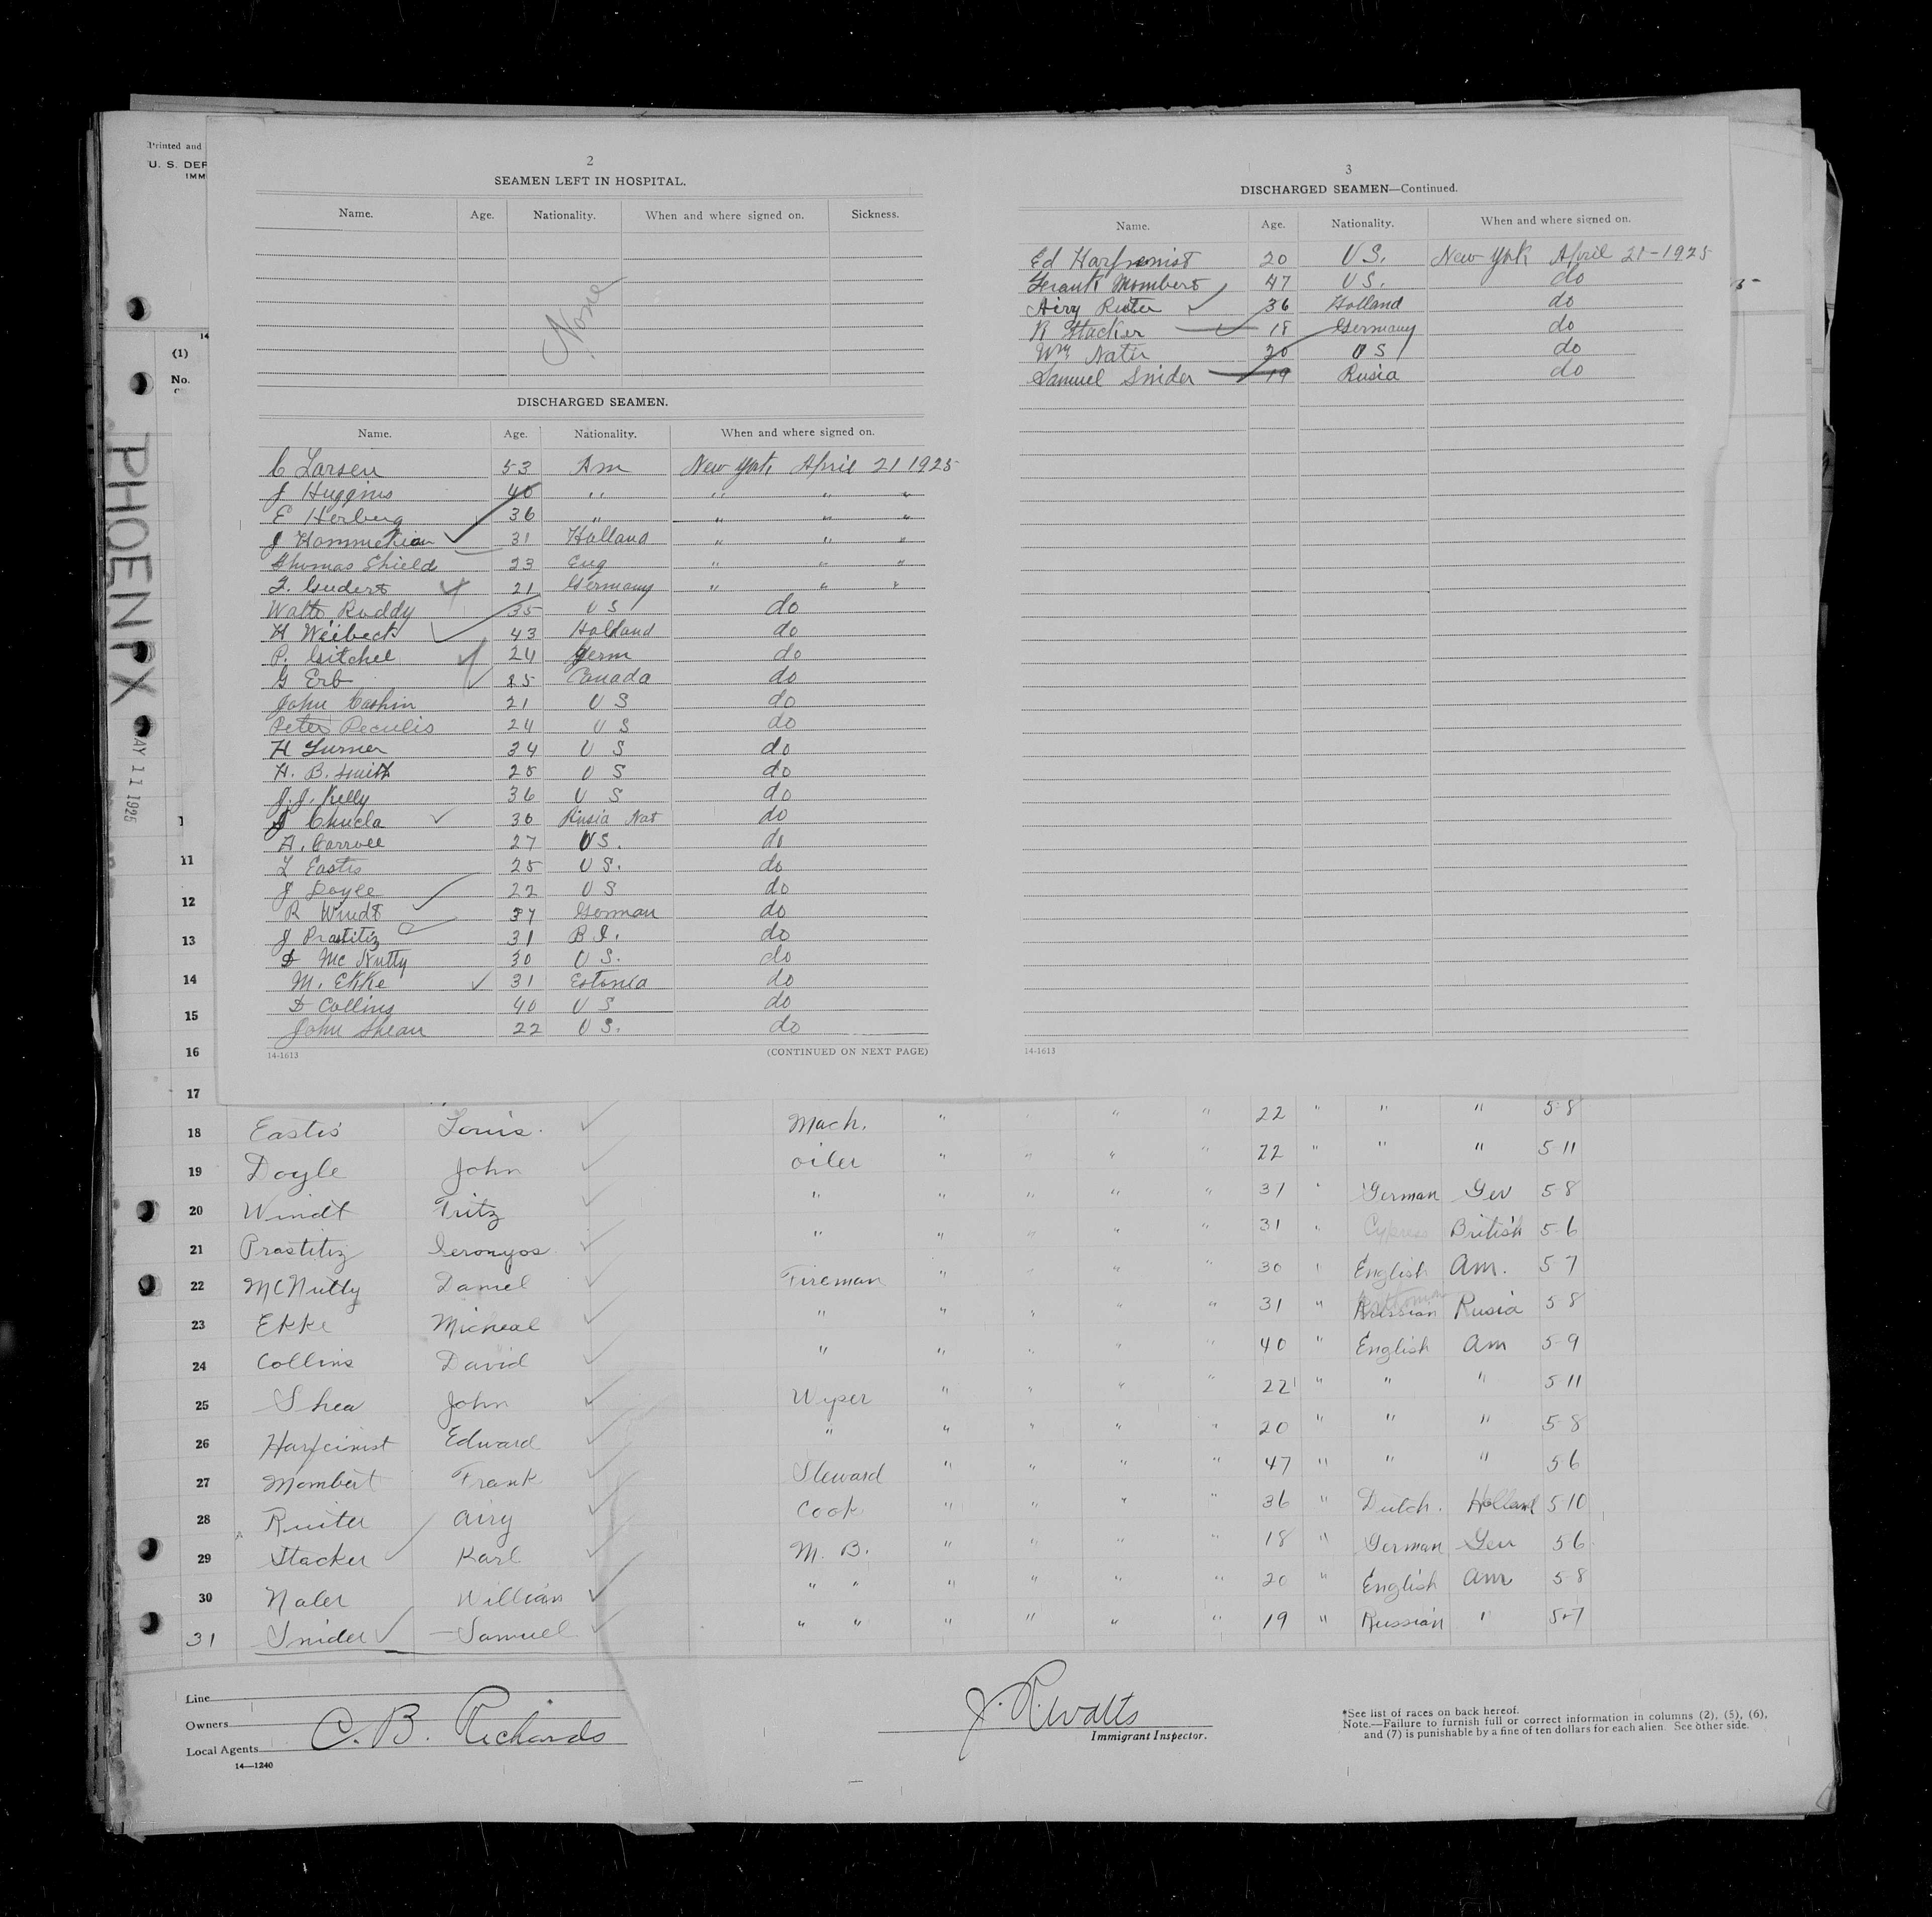 Printed and
U. S. DEP
IMM
14
(1)
No.
PHOENIX
AY 11 1925
2
SEAMEN LEFT IN HOSPITAL.
Name. Age. Nationality. When and where signed on. Sickness.
None
DISCHARGED SEAMEN.
Name. Age. Nationality. When and where signed on.
C Larsen 53 Am New York April 21 1925
J Huggins 40 " " " "
E Herberg 36 " " " "
J 31 Holland " " "
Thomas Shield 23 Eng " " "
21 Germany " " "
Roddy 35 U S do
H Weibeck 43 Holland do
P. Gitchel 24 Germ do
G Erb 25 Canada do
John Cashin 21 U S do
Peter Peculis 24 U S do
H Turner 34 U S do
H. B. Smith 25 U S do
J. J. Kelly 36 U S do
J Chucla 36 Rusia Nat do
H. Carroll 27 US. do
L Eastis 25 U S. do
J Doyle 22 U S do
R Windt 37 German do
J Prastitiz 31 B I. do
D Mc Nutty 30 U S. do
M. Ekke 31 Estonia do
D Collins 40 U S do
John Shean 22 U S. do
14-1613 (CONTINUED ON NEXT PAGE)
3
DISCHARGED SEAMEN—Continued.
Name. Age. Nationality. When and where signed on.
Ed 20 U S. New York April 21-1925
Frank Mombert 47 U S. do
Airy Ruiter 36 Holland do
R Stacker 18 Germany do
Wm 20 U S do
Samuel Snider 19 Rusia do
14-1613
11
12
13
14
15
16
17
18 Eastis Louis. Mach. " " " " 22 " " " 5-8
19 Doyle John oiler " " " " 22 " " " 5-11
20 Windt Fritz " " " " " 37 " German Ger 5-8
21 Prastitiz Ieronyos " " " " " 31 " Cypress British 5-6
22 McNutty Daniel Fireman " " " " 30 " English Am. 5-7
23 Ekke Micheal " " " " " 31 " Russian Rusia 5-8
24 Collins David " " " " " 40 " English Am 5-9
25 Shea John Wiper " " " " 22 " " " 5-11
26 Edward " " " " " 20 " " " 5-8
27 Mombert Frank Steward " " " " 47 " " " 5-6
28 Ruiter Airy Cook " " " " 36 " Dutch. Holland 5-10
29 Stacker Karl M. B. " " " " 18 " German Ger 5-6
30 Naler William " " " " " " 20 " English Am 5-8
31 Snider Samuel " " " " " " 19 " Russian " 5-7
Line
Owners
Local Agents C. B. Richards
14—1240
J. R. Watts
Immigrant Inspector.
*See list of races on back hereof.
Note.—Failure to furnish full or correct information in columns (2), (5), (6),
and (7) is punishable by a fine of ten dollars for each alien. See other side.